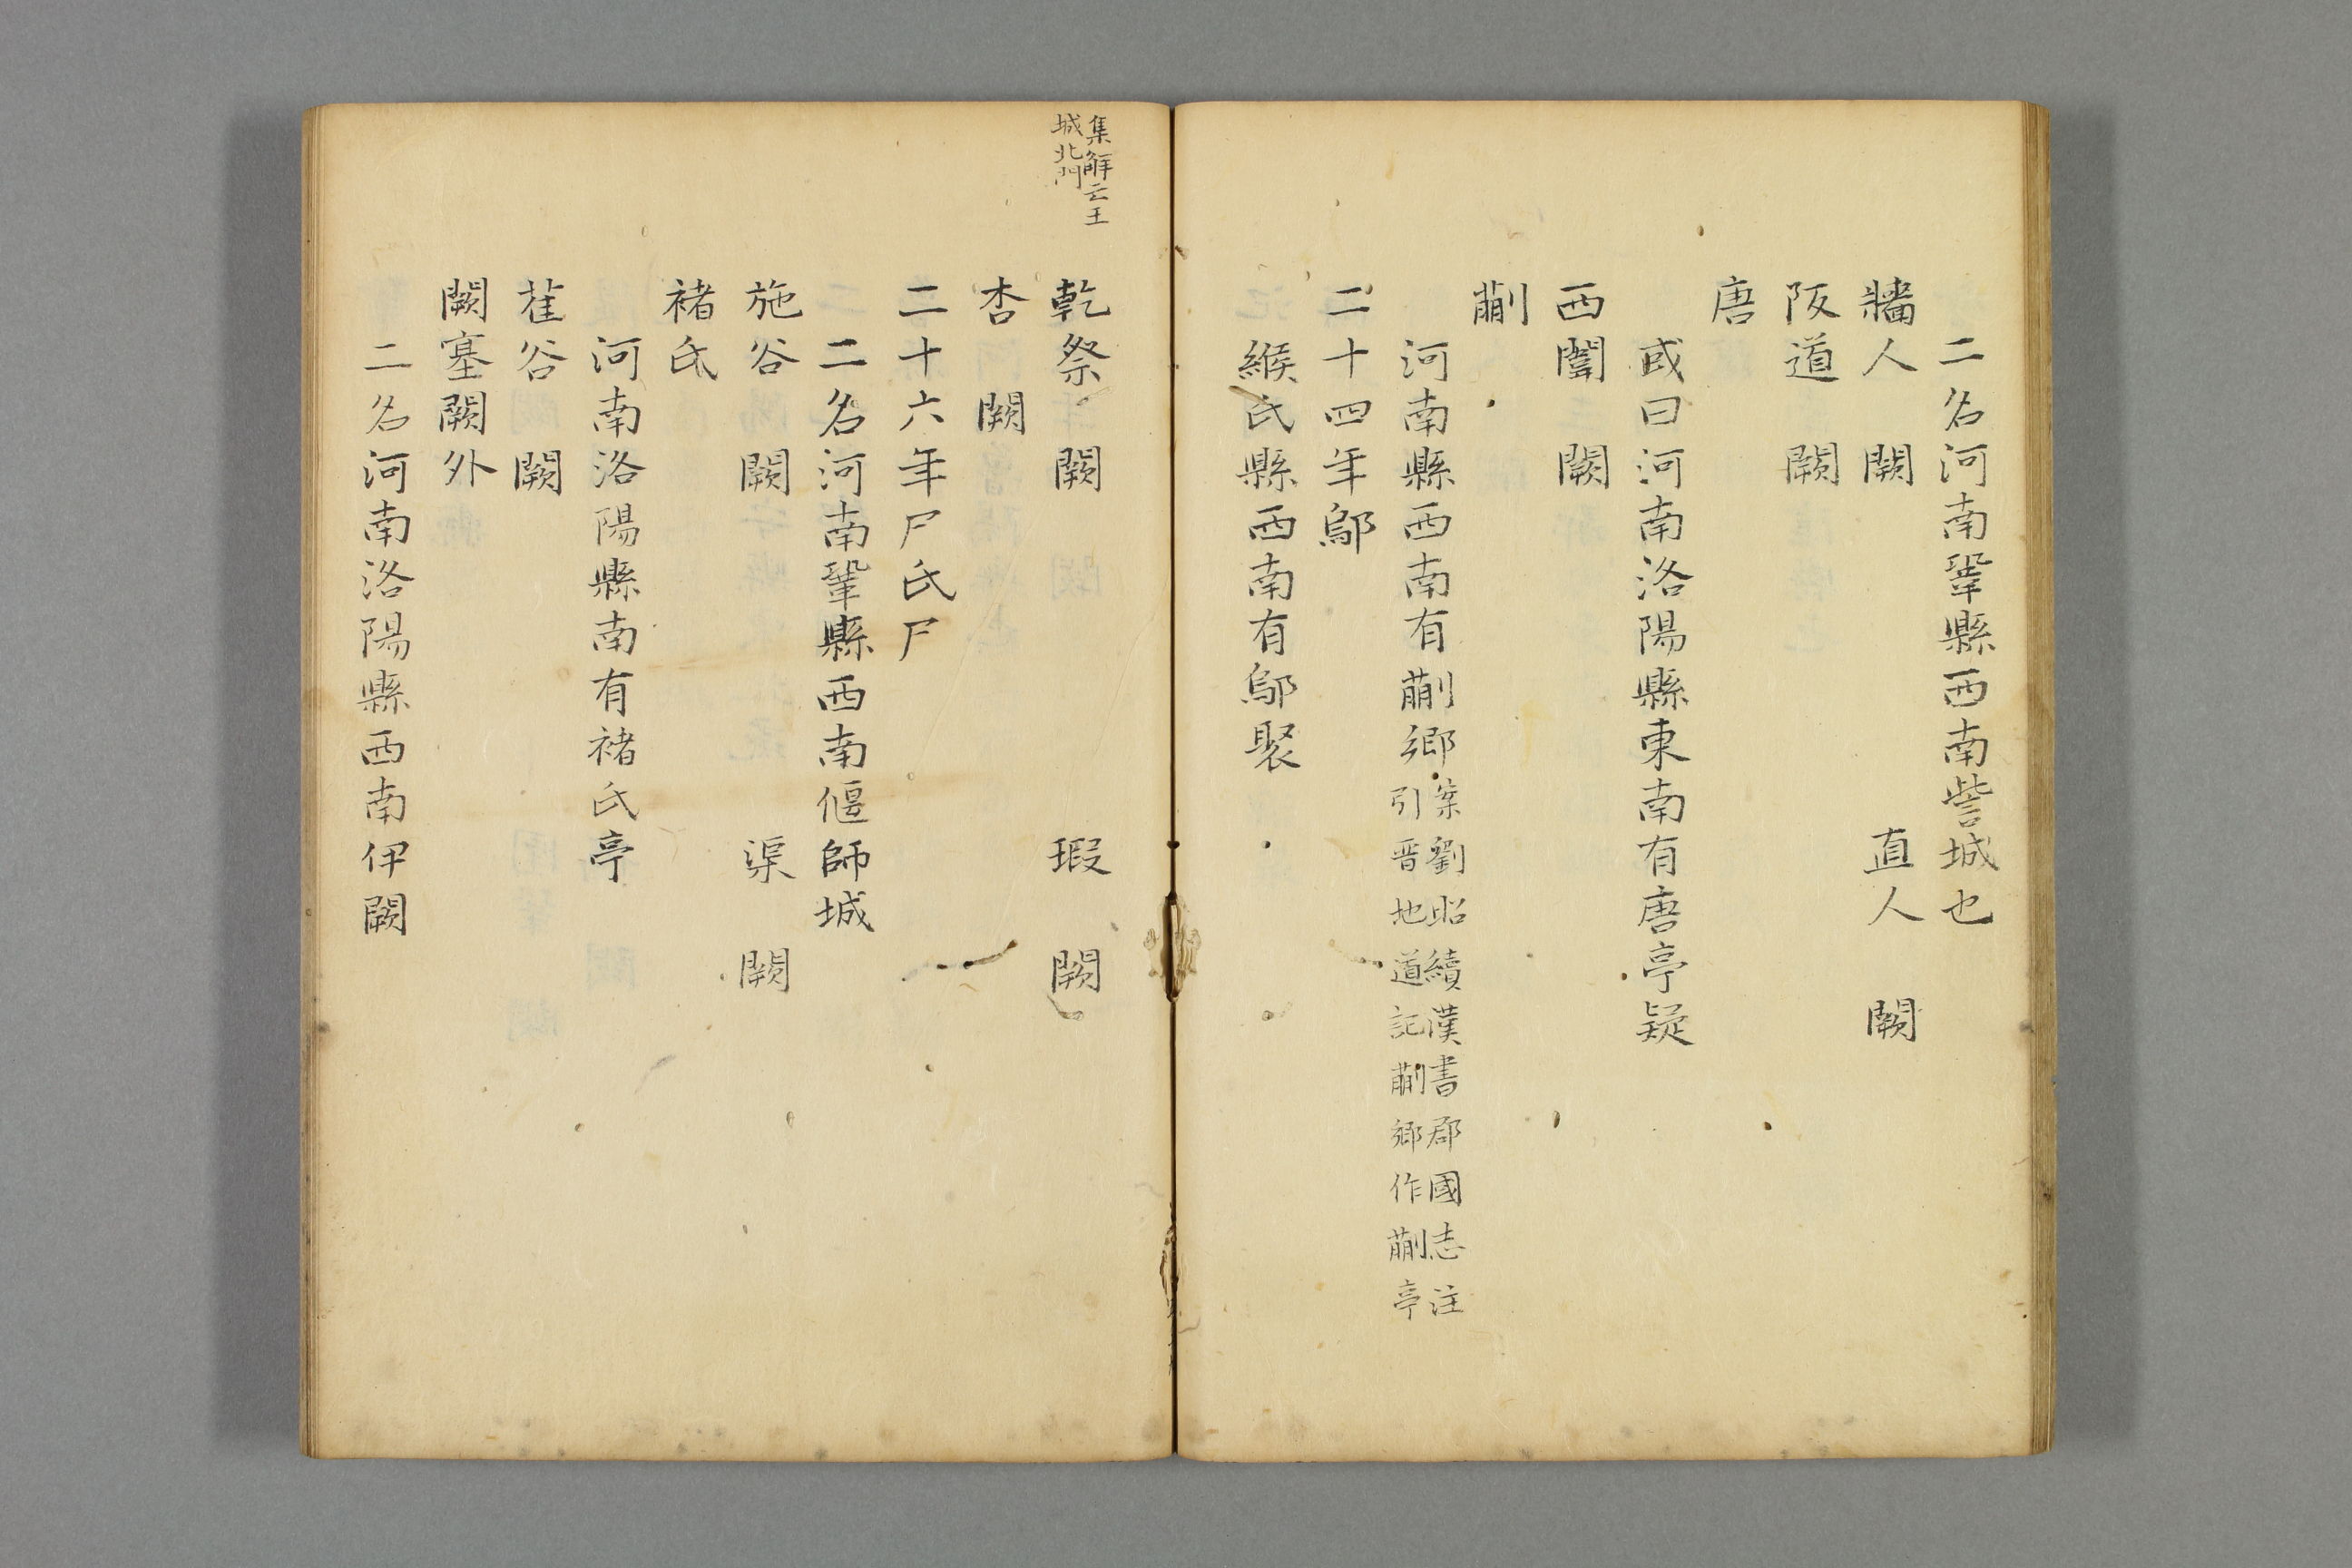 二名河南鞏縣西南訾城也
牆人 闕 直人 闕
阪道 闕
唐
或曰河南洛陽縣東南有唐亭疑
西闈 闕
蒯
河南縣西南有蒯鄉案劉昭續漢書郡國志注
引晉地道記蒯鄉作蒯亭
二十四年鄔
緱氏縣西南有鄔聚
集解云王
城北門
乾祭 闕 瑕 闕
杏 闕
二十六年尸氏尸
二名河南鞏縣西南偃師城
施谷 闕 渠 闕
褚氏
河南洛陽縣南有褚氏亭
萑谷 闕
闕塞闕外
二名河南洛陽縣西南伊闕